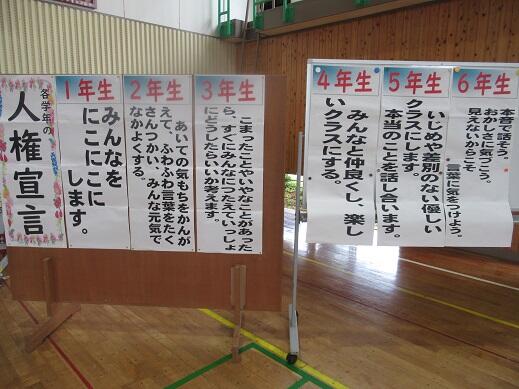 各学年の
人権宣言
1年生
みんなを
にこにこに
します。
2年生
あいての気もちをかんが
えて、ふわふわ言葉をたく
さんつかい、みんな元気で
なかよくする。
3年生
こまったことやいやなことがあった
ら、すぐにみんなにつたえていっしょ
にどうしたらいいか考えます。
4年生
みんなと仲良くし、楽し
いクラスにする。
5年生
いじめや差別のない優しい
クラスにします。
本当のことを話し合います。
6年生
本音で話そう。
おかしさに気づこう。
見えないから言葉に気をつけよう。